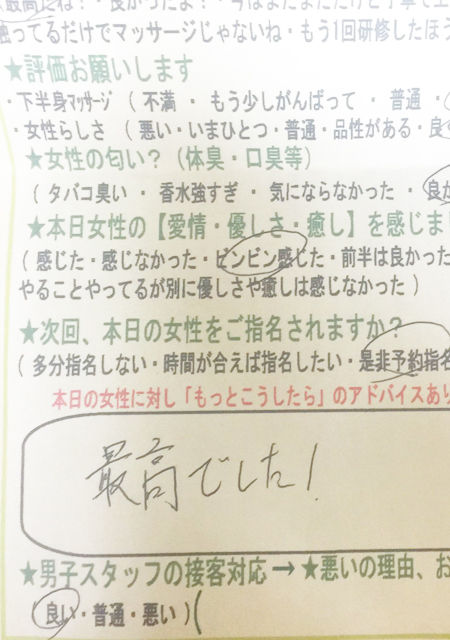 最高だね！・良かったよ！・今はまだまだだけど丁寧で上
触ってるだけでマッサージじゃないね・もう1回研修したほう
★評価お願いします
・下半身マッサージ（不満 ・ もう少しがんばって ・ 普通 ・
・女性らしさ （悪い・いまひとつ・普通・品性がある・良
★女性の匂い？（体臭・口臭等）
（ タバコ臭い ・ 香水強すぎ ・ 気にならなかった ・ 良か
★本日女性の【愛情・優しさ・癒し】を感じま
（ 感じた・感じなかった・ビンビン感じた・前半は良かった
やることやってるが別に優しさや癒しは感じなかった ）
★次回、本日の女性をご指名されますか？
（ 多分指名しない・時間が合えば指名したい・是非予約指名
本日の女性に対し「もっとこうしたら」のアドバイスあり
最高でした！
★男子スタッフの接客対応 → ★悪いの理由、お
（ 良い・普通・悪い ）（